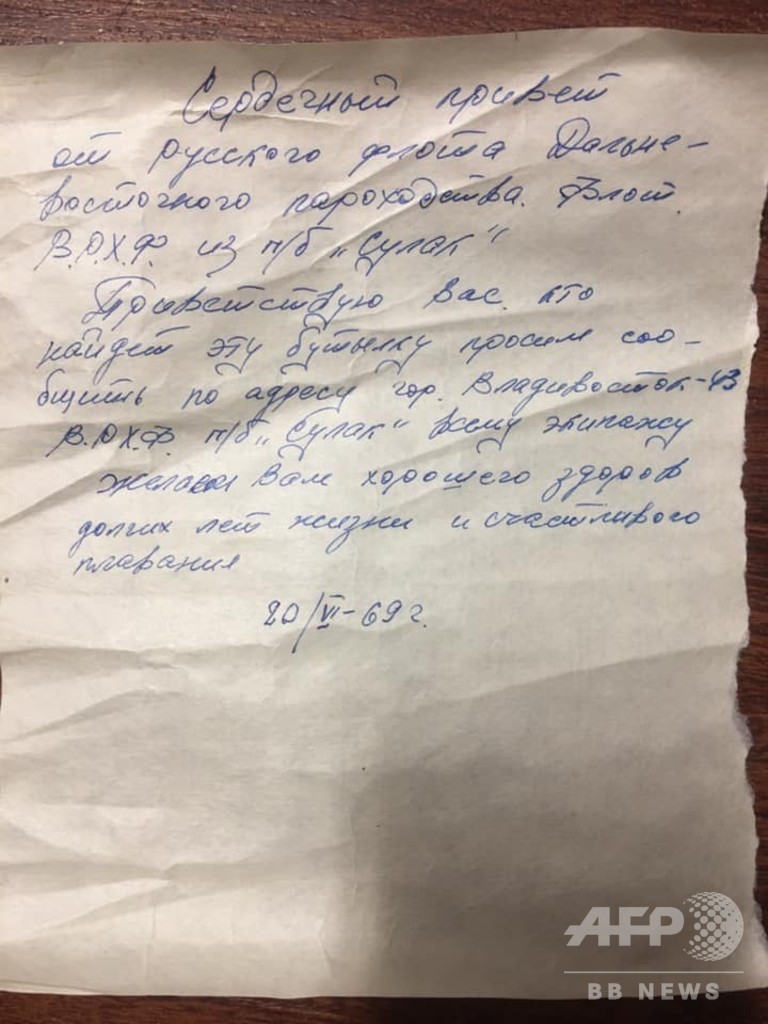 Сердечный привет
от русского флота Дальне-
восточного пароходства. Флот.
В.О.Х.Ф. из п/б „Сулак"
Приветствую Вас. кто
найдет эту бутылку просим соо-
бщить по адресу гор. Владивосток-43
В.О.Х.Ф. п/б „Сулак" всему экипажу
желаем Вам хорошего здоров
долгих лет жизни и счастливого
плавания
20/VI-69 г.
AFP
BB NEWS